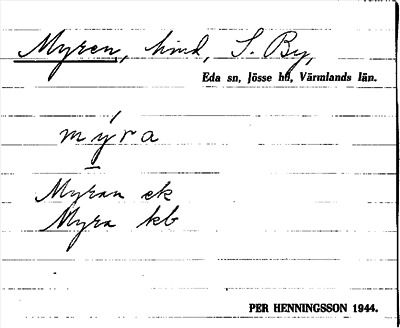 Myren, hmd, S. By,
Eda sn, Jösse hd, Värmlands län.
mýra
Myran ek
Myra kb
PER HENNINGSSON 1944.